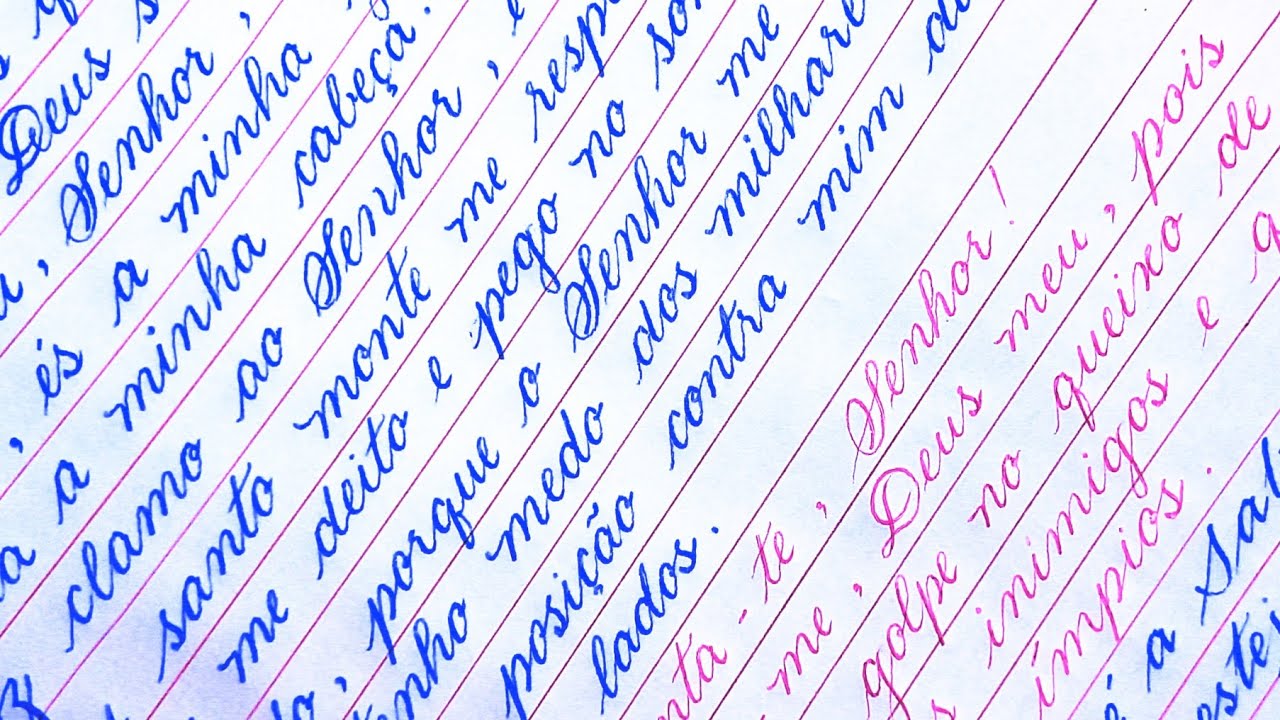 Deus
, Senhor,
, és a minha
a minha cabeça.
clamo ao Senhor, e
santo monte me resp
me deito e pego no son
do, porque o Senhor me
enho medo dos milhare
posição contra mim d
lados.
nta-te, Senhor!
me, Deus meu, pois
golpe no queixo de
s inimigos e q
ímpios.
é a Sal
este